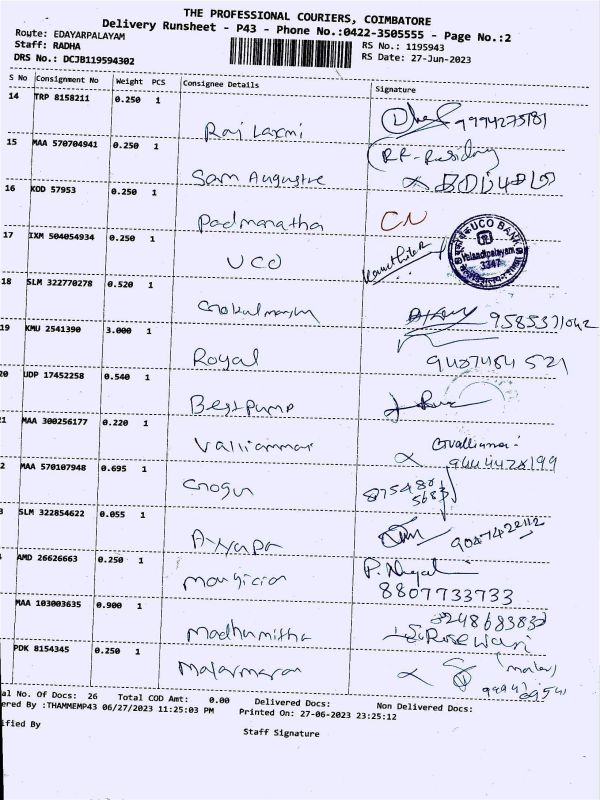 THE PROFESSIONAL COURIERS, COIMBATORE
Delivery Runsheet - P43 - Phone No.:0422-3505555 - Page No.:2
Route: EDAYARPALAYAM
Staff: RADHA RS No.: 1195943
DRS No.: DCJB119594302 RS Date: 27-Jun-2023
S No Consignment No Weight PCS Consignee Details Signature
14 TRP 8158211 0.250 1
Raj Laxmi 9994275181
15 MAA 570704941 0.250 1
Sam Augustive
16 KOD 57953 0.250 1
Padmanatha CN
17 IXM 504054934 0.250 1
UCO UCO BANK Velandipalayam 3347
18 SLM 322770278 0.520 1
9585371042
19 KMU 2541390 3.000 1
Royal 9487464521
20 UDP 17452258 0.540 1
Bestpump
1 MAA 300256177 0.220 1
Valliammai
2 MAA 570107948 0.695 1
3 SLM 322854622 0.055 1
Ayyapa
AMD 26626663 0.250 1
P. Nagal
8807733733
MAA 103003635 0.900 1
Madhumitha
PDK 8154345 0.250 1
Malarmaran (malar)
al No. Of Docs: 26 Total COD Amt: 0.00 Delivered Docs: Non Delivered Docs:
ered By :THAMMEMP43 06/27/2023 11:25:03 PM Printed On: 27-06-2023 23:25:12
ified By Staff Signature